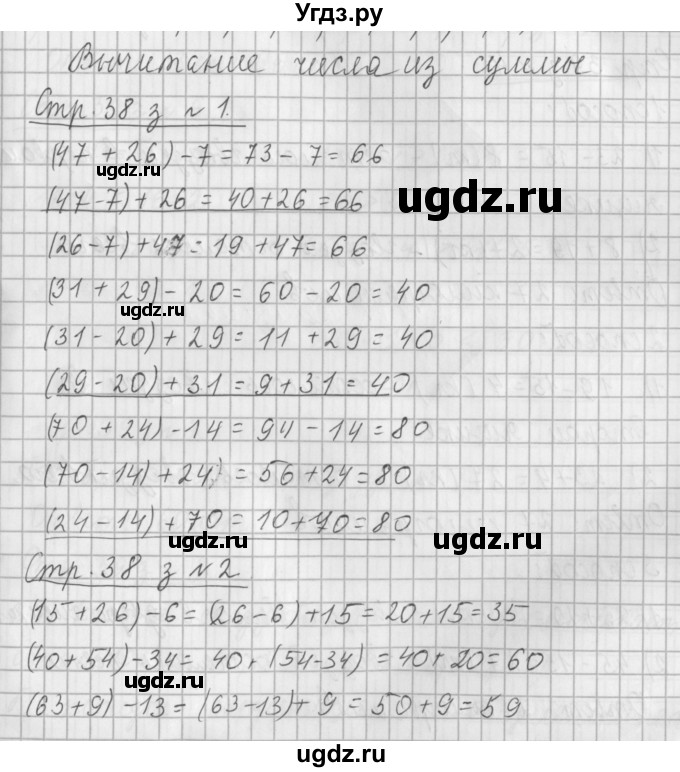 Угдз.ру
Вычитание числа из суммы
Стр. 38 з №1.
(47 + 26) - 7 = 73 - 7 = 66
ugdz.ru
(47-7) + 26 = 40 + 26 = 66
ugdz.ru
(26-7) + 47 = 19 + 47 = 66
(31 + 29) - 20 = 60 - 20 = 40
ugdz.ru
(31 - 20) + 29 = 11 + 29 = 40
(29 - 20) + 31 = 9 + 31 = 40
(70 + 24) - 14 = 94 - 14 = 80
(70 - 14) + 24 = 56 + 24 = 80
(24 - 14) + 70 = 10 + 70 = 80
ugdz.ru
ugdz.ru
Стр. 38 з №2.
(15 + 26) - 6 = (26 - 6) + 15 = 20 + 15 = 35
(40 + 54) - 34 = 40 + (54 - 34) = 40 + 20 = 60
ugdz.ru
(63 + 9) - 13 = (63 - 13) + 9 = 50 + 9 = 59
ugdz.ru